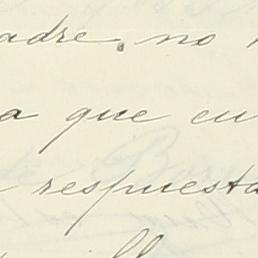 adre, no
a que en
respuesta